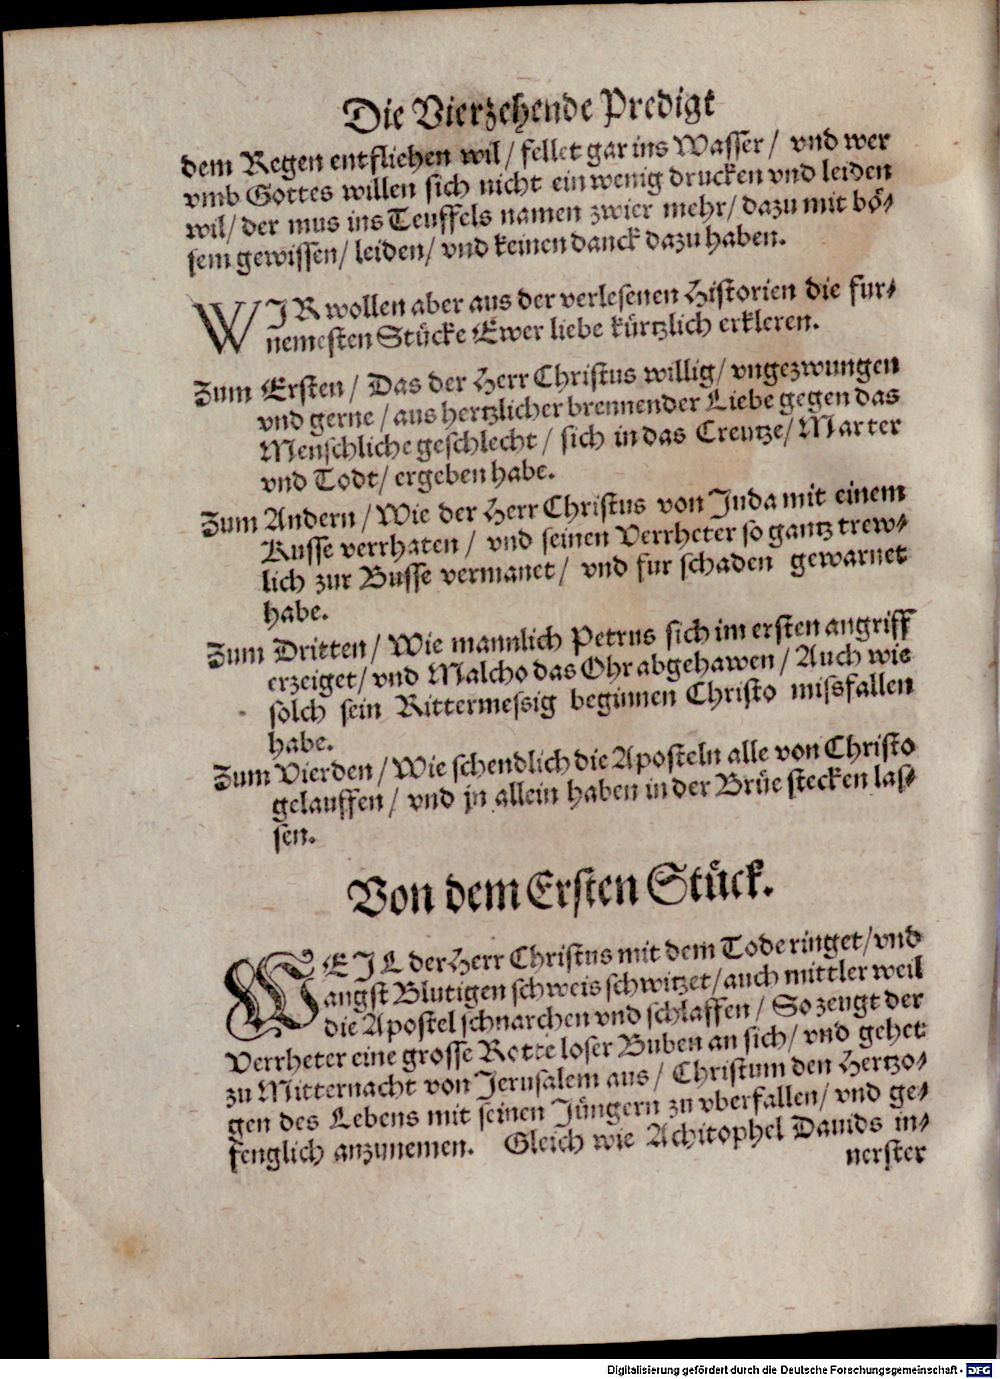 Die Vierzehende Predigt
dem Regen entfliehen wil/ fellet gar ins Wasser/ vnd wer
vmb Gottes willen sich nicht ein wenig drucken vnd leiden
wil/ der mus ins Teuffels namen zwier mehr/ dazu mit bö-
sem gewissen/ leiden/ vnd keinen danck dazu haben.
WIR wollen aber aus der verlesenen Historien die fur-
nemesten Stücke Ewer liebe kürtzlich erkleren.
Zum Ersten/ Das der Herr Christus willig/ vngezwungen
vnd gerne/ aus hertzlicher brennender Liebe gegen das
Menschliche geschlecht/ sich in das Creutze/ Marter
vnd Todt/ ergeben habe.
Zum Andern/ Wie der Herr Christus von Juda mit einem
Kusse verrhaten/ vnd seinen Verrheter so gantz trew-
lich zur Busse vermanet/ vnd fur schaden gewarnet
habe.
Zum Dritten/ Wie mannlich Petrus sich im ersten angriff
erzeiget/ vnd Malcho das Ohr abgehawen/ Auch wie
solch sein Rittermessig beginnen Christo missfallen
habe.
Zum Vierden/ Wie schendlich die Aposteln alle von Christo
gelauffen/ vnd jn allein haben in der Brüe stecken las-
sen.
Von dem Ersten Stück.
WEIL der Herr Christus mit dem Tode ringet/ vnd
angst Blutigen schweis schwitzet/ auch mittler weil
die Apostel schnarchen vnd schlaffen/ So zeugt der
Verrheter eine grosse Rotte loser Buben an sich/ vnd gehet
zu Mitternacht von Jerusalem aus/ Christum den Hertzo-
gen des Lebens mit seinen Jüngern zu vberfallen/ vnd ge-
fenglich anzunemen. Gleich wie Achitophel Dauids in-
nerster
Digitalisierung gefördert durch die Deutsche Forschungsgemeinschaft - DFG